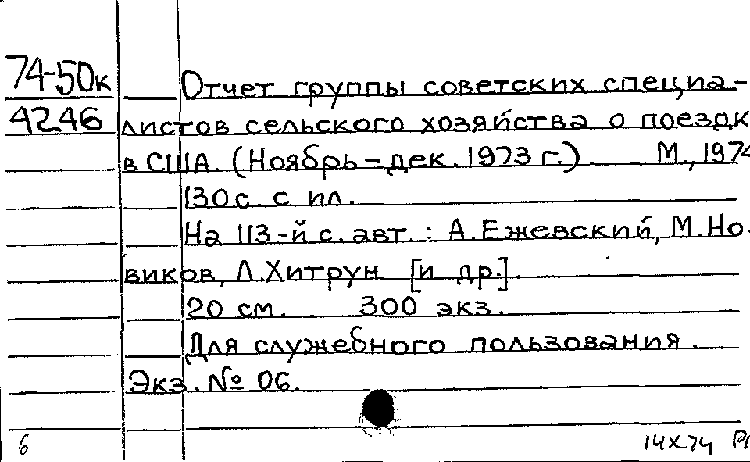 74-50к
4246
Отчет группы советских специа-
листов сельского хозяйства о поездк
в США. (Ноябрь-дек. 1973 г.) М., 1974
130 с. с ил.
На 113-й с. авт.: А. Ежевский, М. Но-
виков, Л. Хитрун [и др.].
20 см. 300 экз.
Для служебного пользования.
Экз. № 06.
6 14 X 74